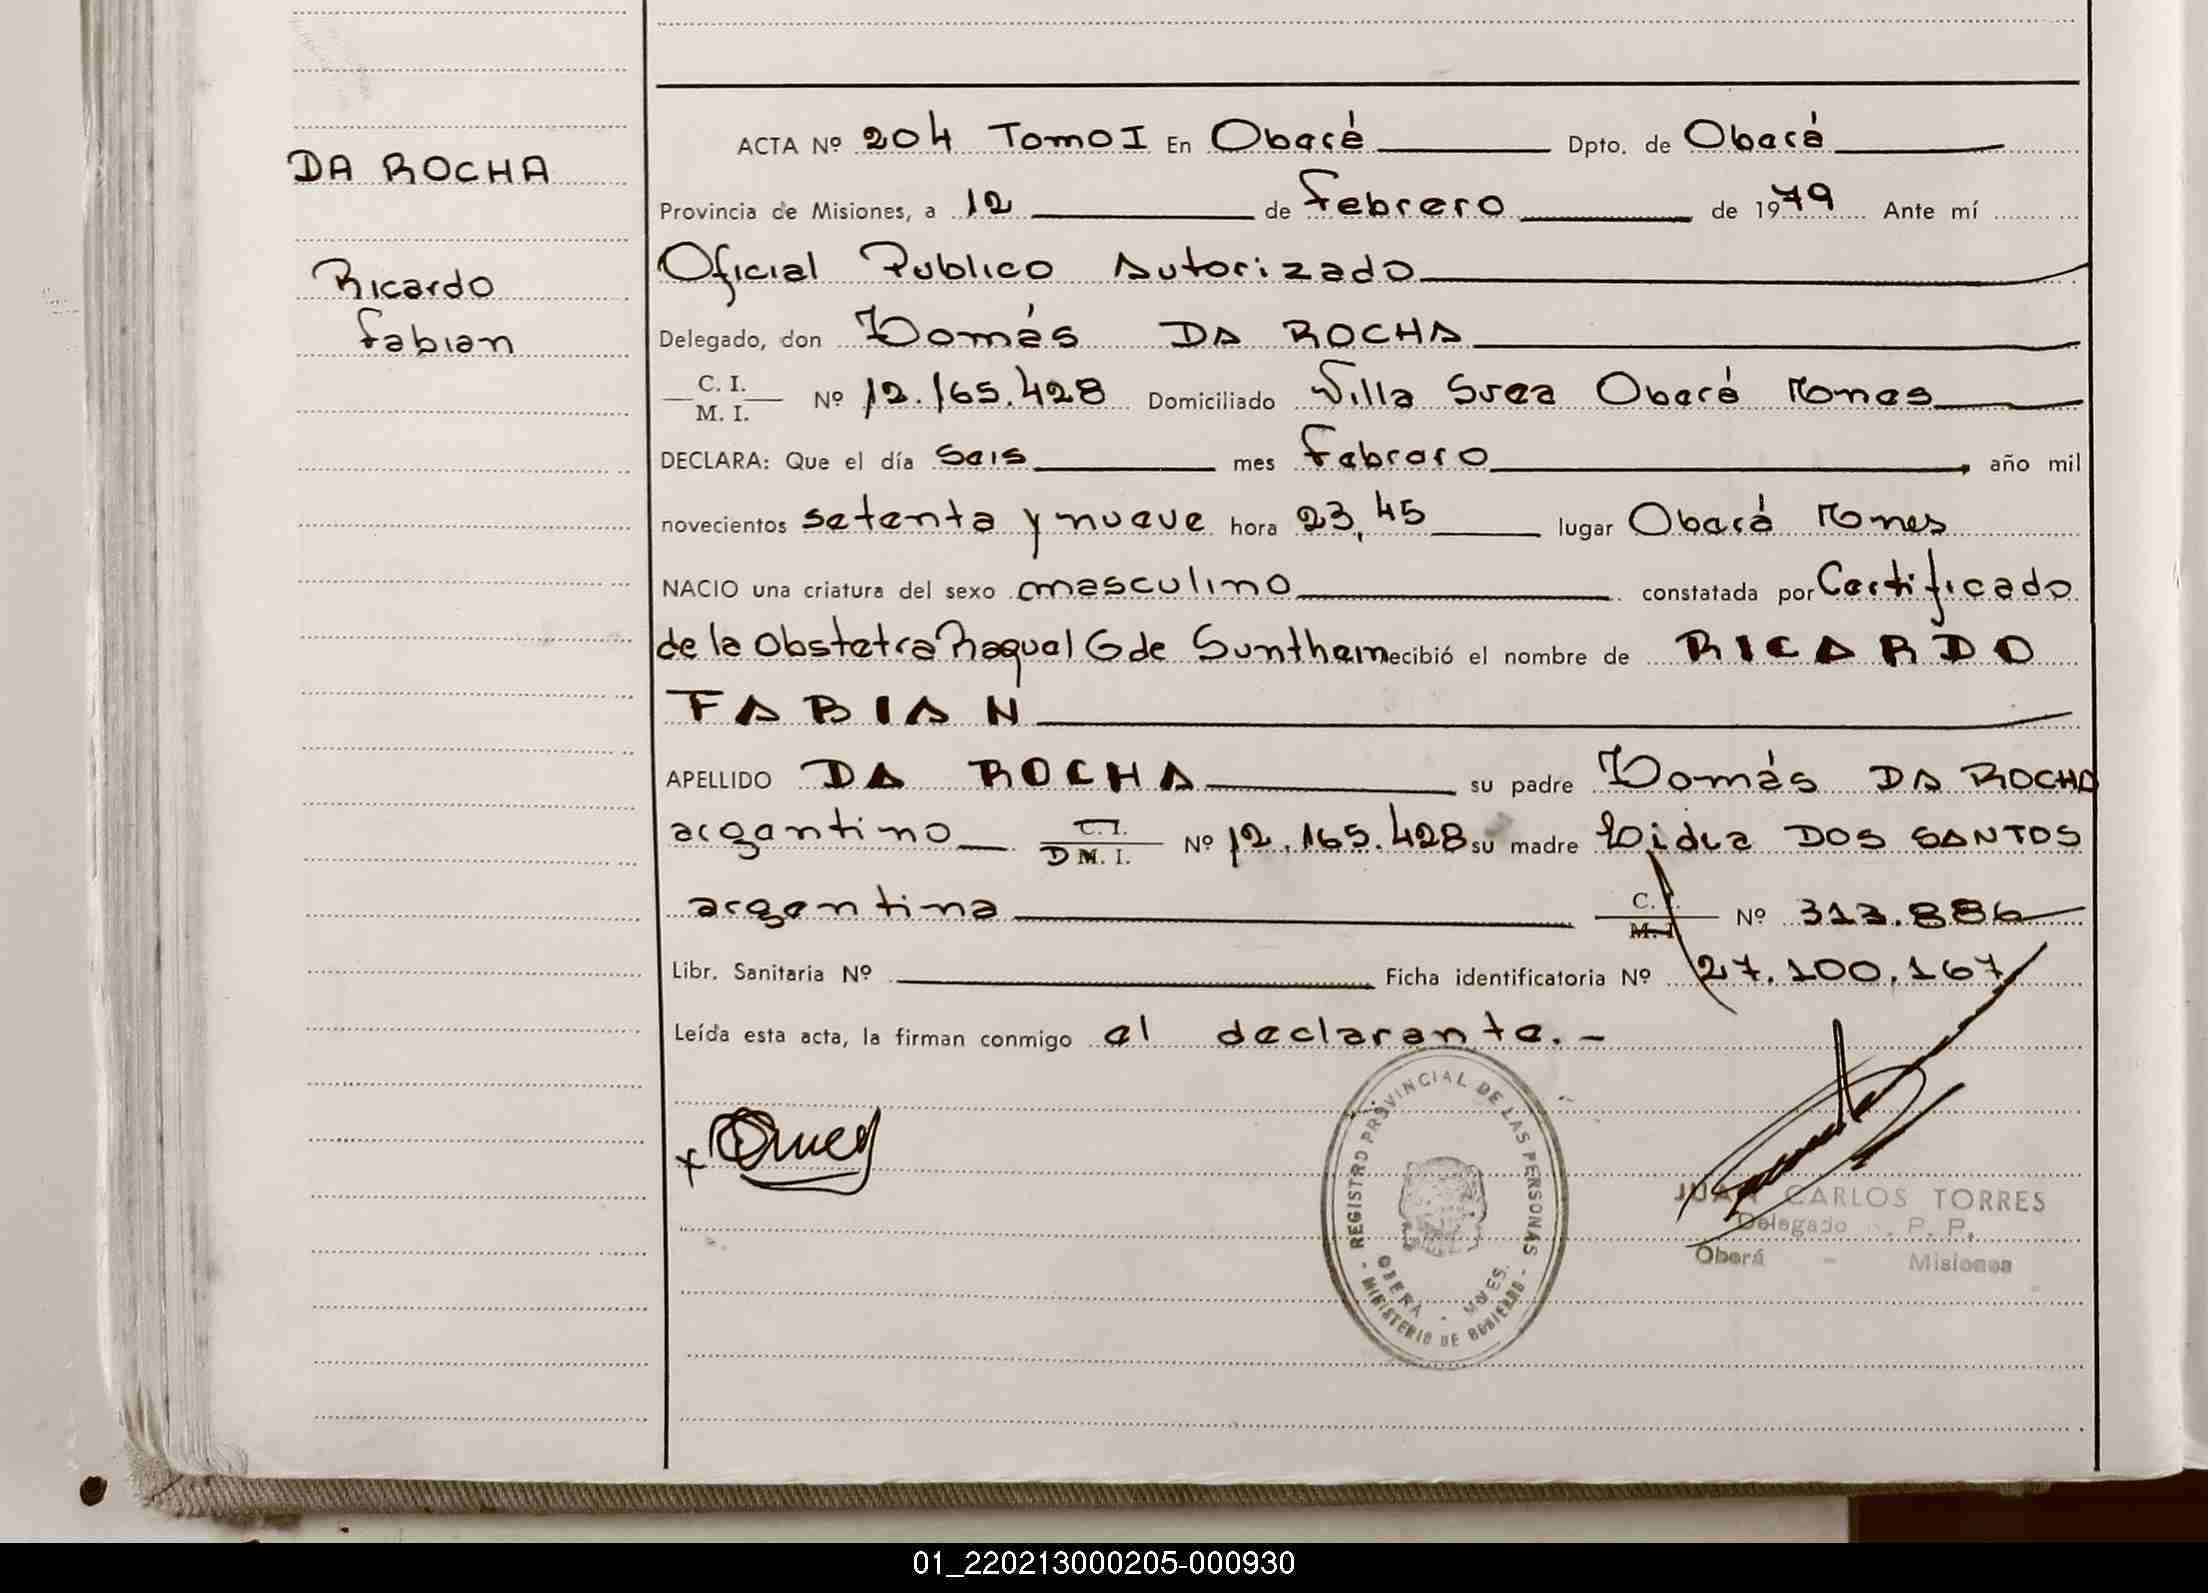 ACTA Nº 204 Tomo I En Oberá Dpto. de Oberá
DA ROCHA
Provincia de Misiones, a 12 de Febrero de 1979 Ante mí
Oficial Publico Autorizado
Ricardo
Fabian
Delegado, don Tomás DA ROCHA
C. I.
M. I.
Nº 12.165.428 Domiciliado Villa Svea Oberá Mones
DECLARA: Que el día seis mes Febrero, año mil
novecientos setenta y nueve hora 23,45 lugar Oberá Mones
NACIO una criatura del sexo masculino constatada por Certificado
de la Obstetra Raquel G de Sunthem recibió el nombre de RICARDO
FABIAN
APELLIDO DA ROCHA su padre Tomás DA ROCHA
argentino C. I. D M. I. Nº 12.165.428 su madre Lidia DOS SANTOS
argentina C. I. M. I. Nº 313.886
Libr. Sanitaria Nº Ficha identificatoria Nº 27.100.167
Leída esta acta, la firman conmigo el declarante.-
REGISTRO PROVINCIAL DE LAS PERSONAS
OBERA - MNES.
- MINISTERIO DE GOBIERNO -
JUAN CARLOS TORRES
Delegado R. P. P.
Oberá - Misiones
01_220213000205-000930